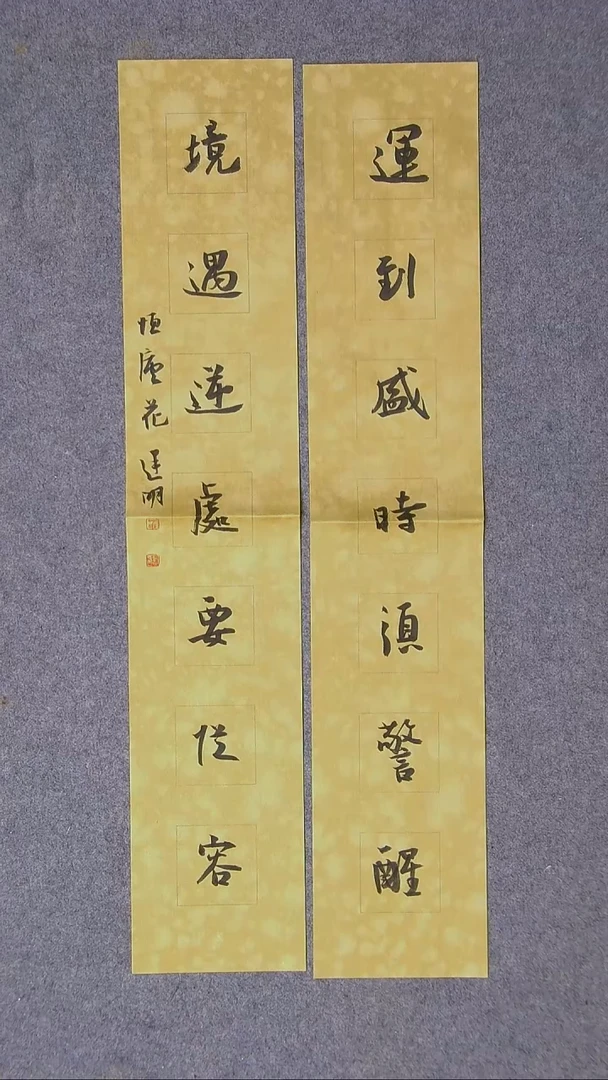 運到盛時須警醒
境遇逆處要從容
恒廬花建明